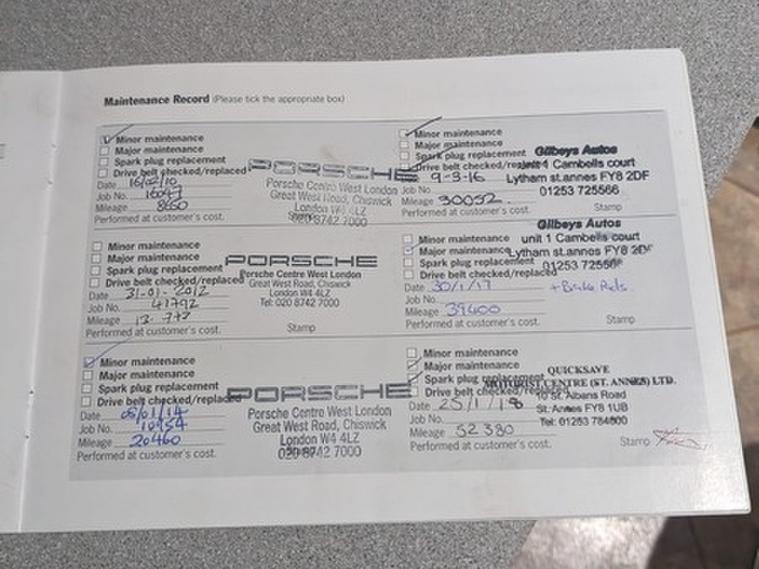 Maintenance Record (Please tick the appropriate box)
Minor maintenance
Major maintenance
Spark plug replacement
Drive belt checked/replaced
Date 16/02/10
Job No. 
Mileage 8660
Performed at customer's cost.
PORSCHE
Porsche Centre West London
Great West Road, Chiswick
London W4 4LZ
020 8742 7000
Stamp
Minor maintenance
Major maintenance
Spark plug replacement
Drive belt checked/replaced
Date 31-01-2012
Job No. 41792
Mileage 13.777
Performed at customer's cost.
PORSCHE
Porsche Centre West London
Great West Road, Chiswick
London W4 4LZ
Tel: 020 8742 7000
Stamp
Minor maintenance
Major maintenance
Spark plug replacement
Drive belt checked/replaced
Date 08/01/14
Job No. 10954
Mileage 20460
Performed at customer's cost.
PORSCHE
Porsche Centre West London
Great West Road, Chiswick
London W4 4LZ
020 8742 7000
Minor maintenance
Major maintenance
Spark plug replacement
Drive belt checked/replaced
Date 9-3-16
Job No.
Mileage 30032
Performed at customer's cost.
Gilbeys Autos
unit 1 Cambells court
Lytham st.annes FY8 2DF
01253 725566
Stamp
Minor maintenance
Major maintenance
Spark plug replacement
Drive belt checked/replaced
Date 30/1/17
Job No.
Mileage 39400
Performed at customer's cost.
Gilbeys Autos
unit 1 Cambells court
Lytham st.annes FY8 2DF
01253 725566
+ Brake Pads.
Stamp
Minor maintenance
Major maintenance
Spark plug replacement
Drive belt checked/replaced
Date 25/1/18
Mileage 52380
Performed at customer's cost.
QUICKSAVE
MOTORIST CENTRE (ST. ANNES) LTD.
10 St. Albans Road
St. Annes FY8 1UB
Tel: 01253 784800
Stamp